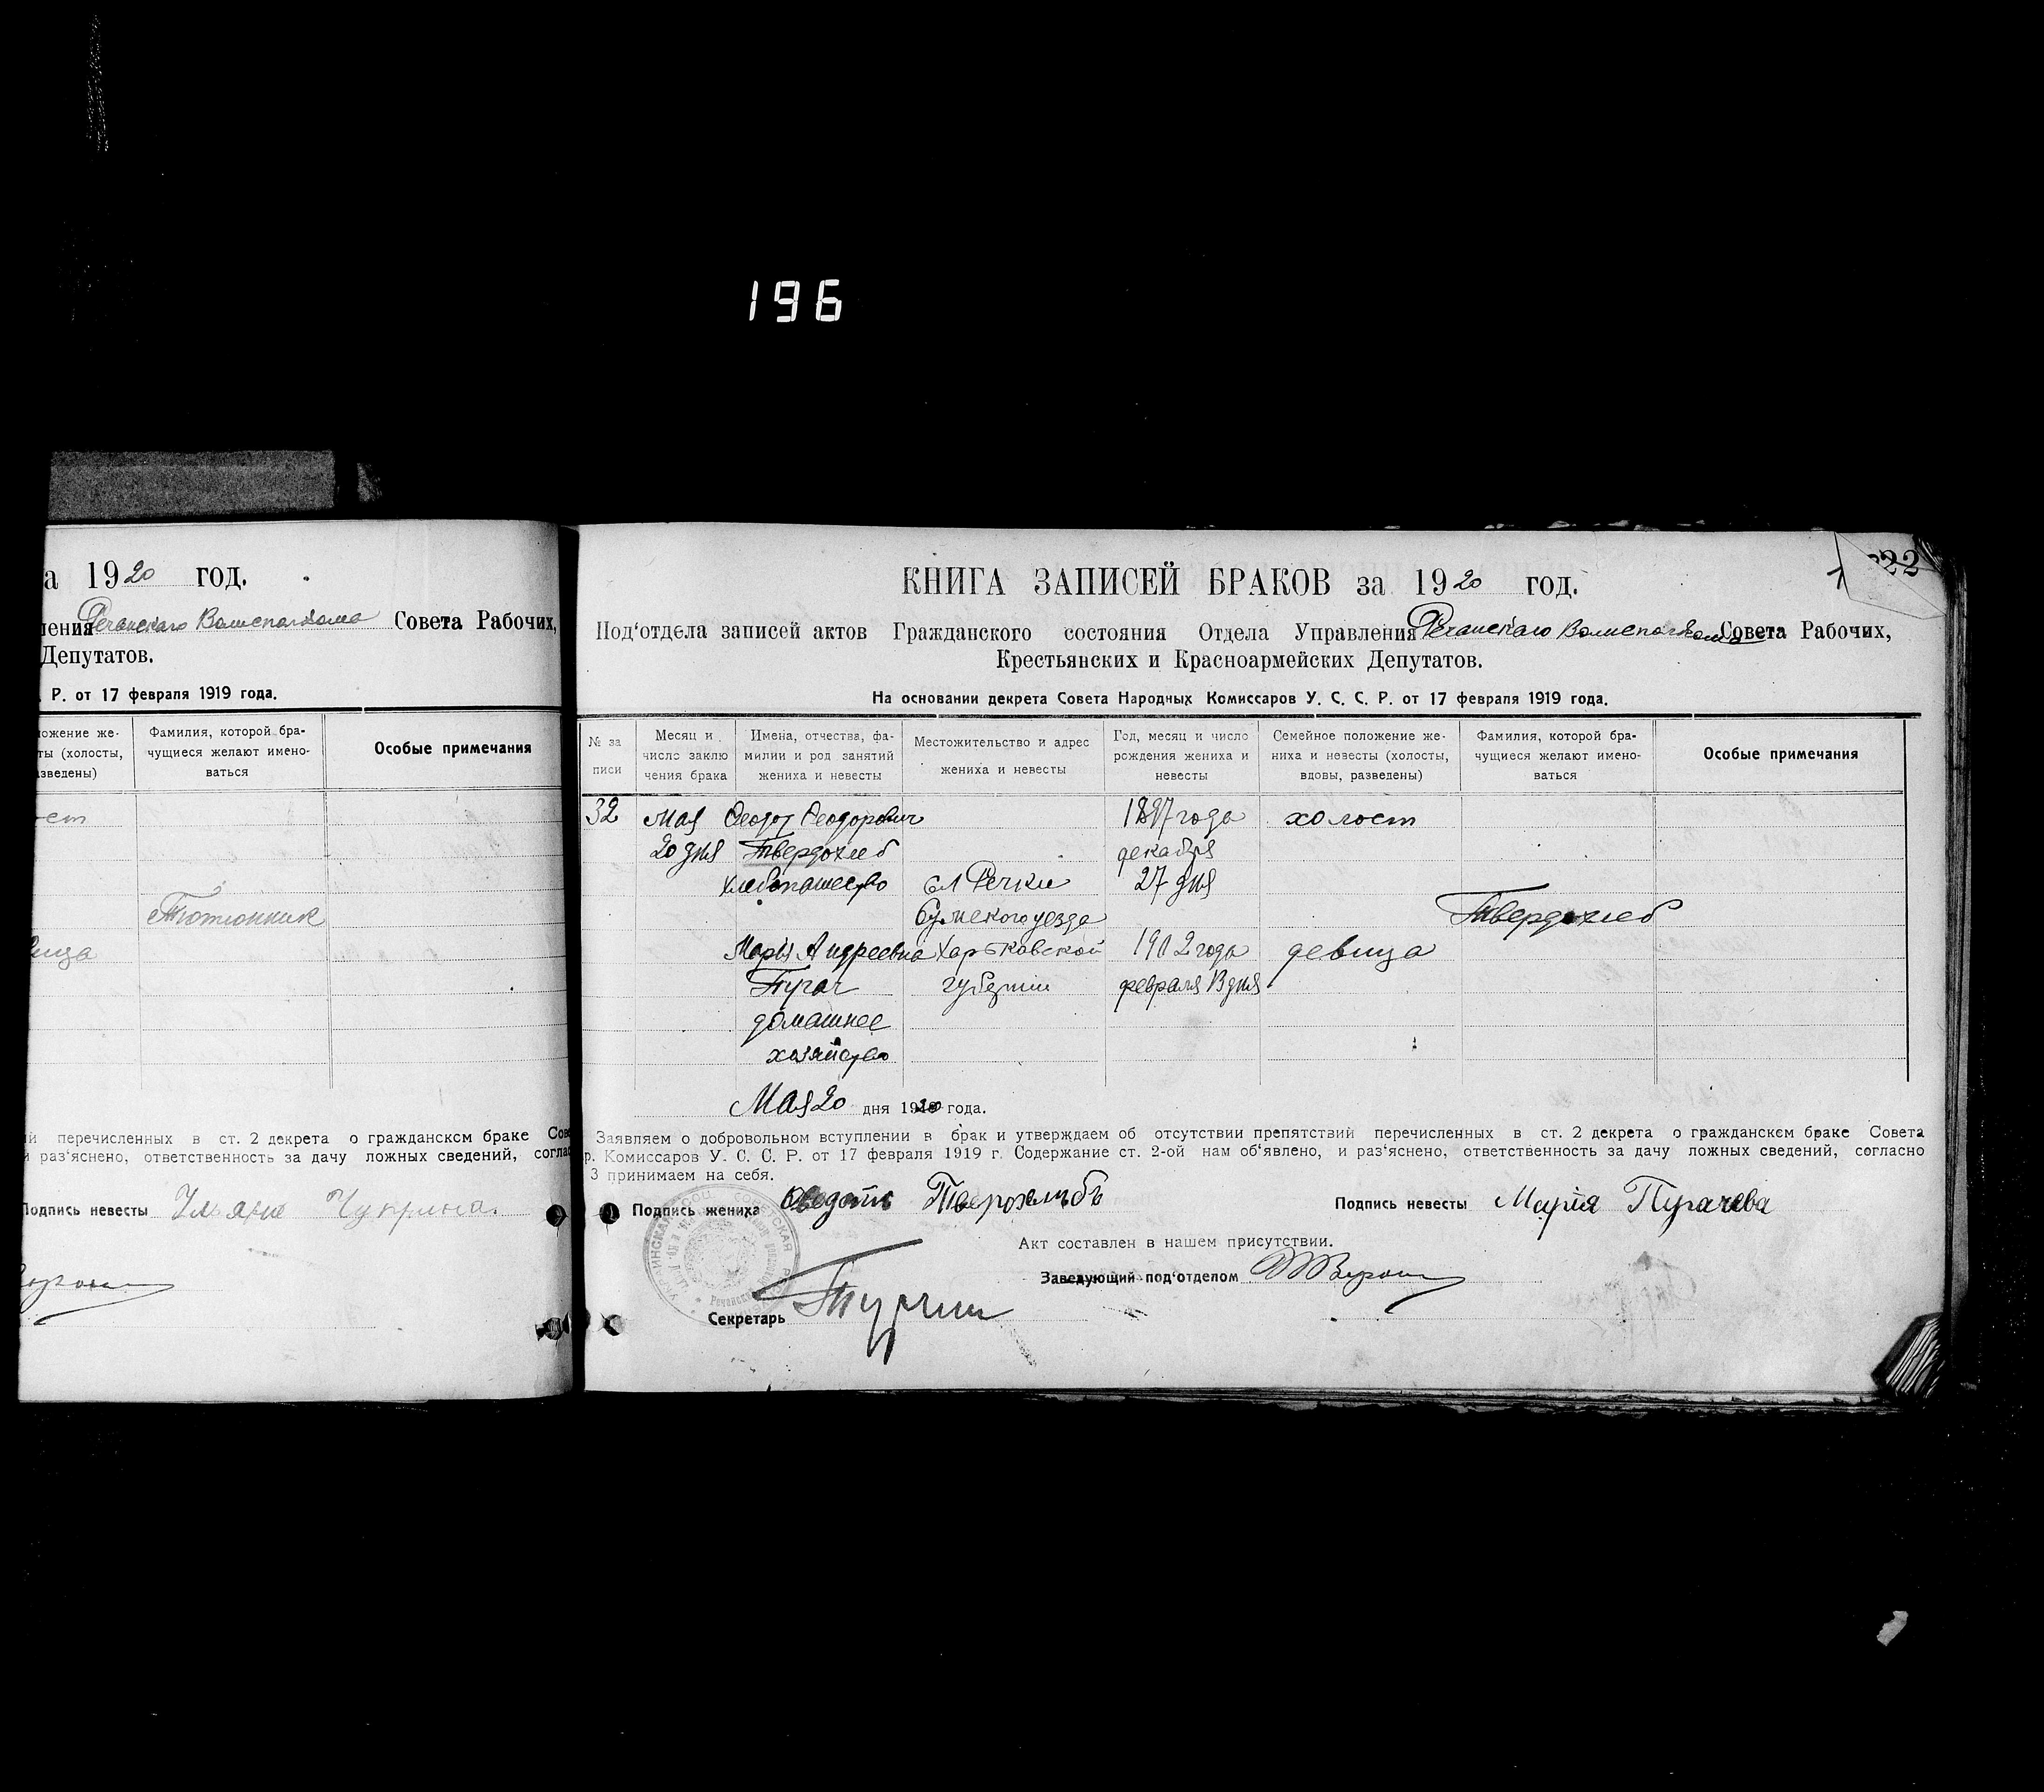 196
а 1920 год.
ления Речанскаго Волисполкома Совета Рабочих,
Депутатов.
. Р. от 17 февраля 1919 года.
ложение же-
ты (холосты,
зведены)
Фамилия, которой бра-
чущиеся желают имено-
ваться
Особые примечания
ост
Тютюнник
вица
й перечисленных в ст. 2 декрета о гражданском браке Сове
и раз‘яснено, ответственность за дачу ложных сведений, соглас
Подпись невесты Ульяна Чуприна.
322
КНИГА ЗАПИСЕЙ БРАКОВ за 1920 год.
Под‘отдела записей актов Гражданского состояния Отдела Управления Речанскаго Волисполкома Совета Рабочих,
Крестьянских и Красноармейских Депутатов.
На основании декрета Совета Народных Комиссаров У. С. С. Р. от 17 февраля 1919 года.
№ за
писи
Месяц и
число заклю
чения брака
Имена, отчества, фа-
милии и род занятий
жениха и невесты
Местожительство и адрес
жениха и невесты
Год, месяц и число
рождения жениха и
невесты
Семейное положение же-
ниха и невесты (холосты,
вдовы, разведены)
Фамилия, которой бра-
чущиеся желают имено-
ваться
Особые примечания
32 Мая Феодот Феодорович 1897 года холост
20 дня Твердохлеб декабря
хлебопашество сл Речки 27 дня
Сумского уезда Твердохлеб
Мария Андреевна Харьковской 1902 года девица
Пугач губернии февраля дня
домашнее
хозяйство
Мая 20 дня 1920 года.
Заявляем о добровольном вступлении в брак и утверждаем об отсутствии препятствий перечисленных в ст. 2 декрета о гражданском браке Совета
р. Комиссаров У. С. С. Р. от 17 февраля 1919 г. Содержание ст. 2-ой нам об‘явлено, и раз‘яснено, ответственность за дачу ложных сведений, согласно
3 принимаем на себя.
Подпись жениха Федотъ Тверохлѣбъ Подпись невесты Марія Пугачева
Акт составлен в нашем присутствии.
Заведующий под‘отделом
Секретарь